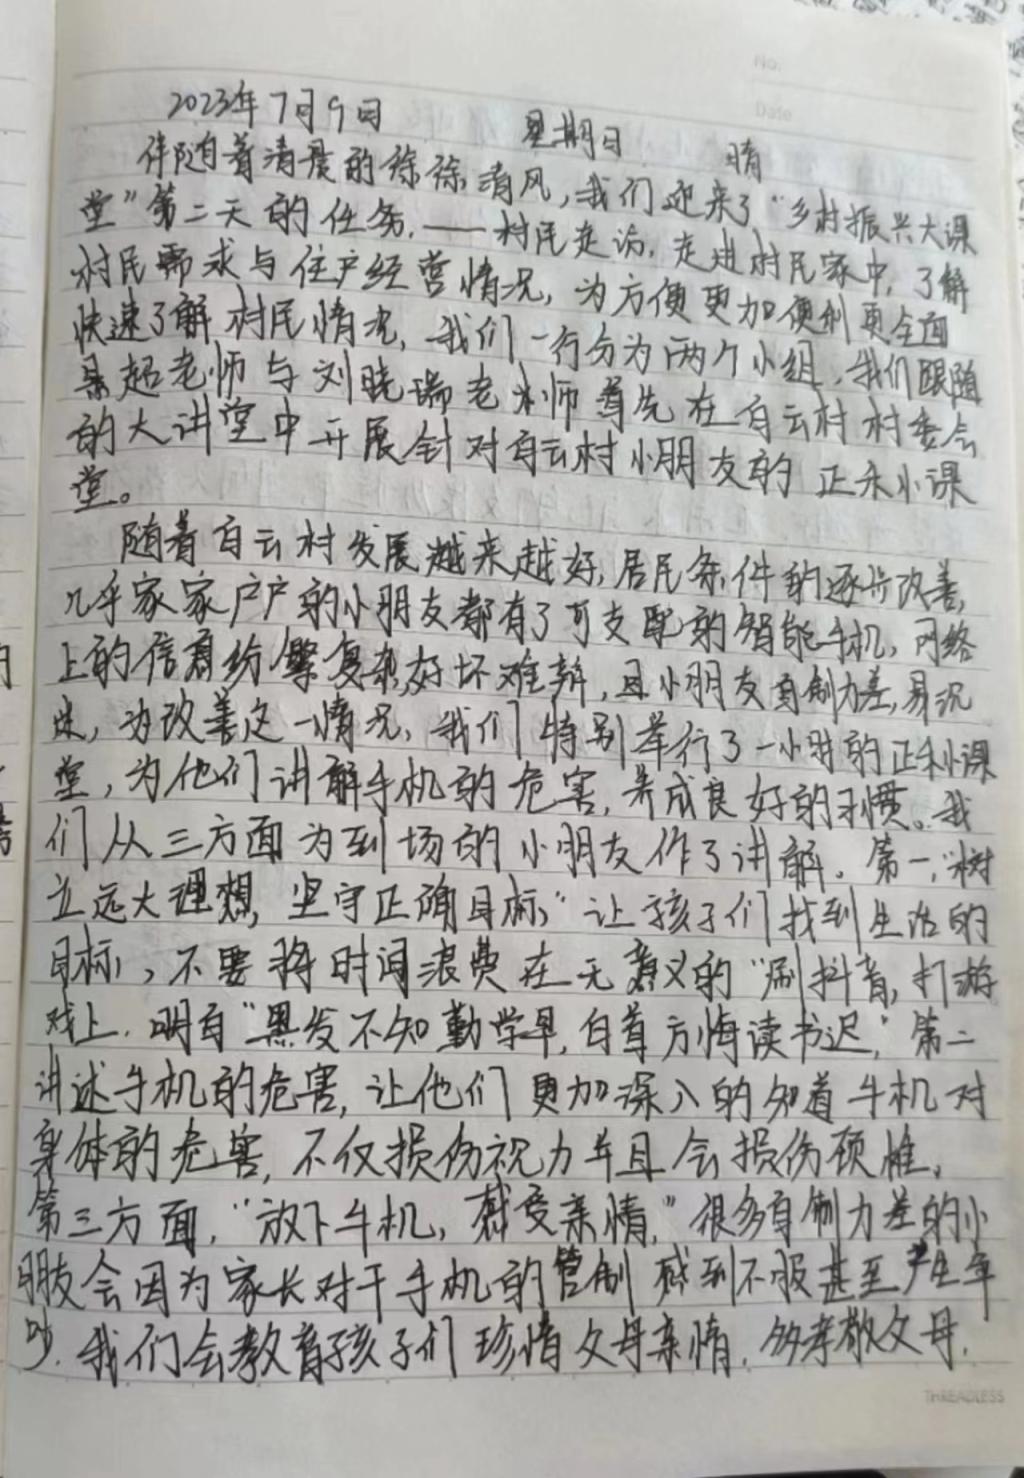 No.
Date
2023年7月9日 星期日 晴
伴随着清晨的徐徐清风,我们迎来了“乡村振兴大课
堂”第二天的任务,——村民走访,走进村民家中,了解
村民需求与住户经营情况,为方便更加便利更全面
快速了解村民情况,我们一行分为两个小组,我们跟随
超老师与刘晓瑞老师首先在白云村村委会
的大讲堂中开展针对白云村小朋友的正禾小课
堂。
随着白云村发展越来越好,居民条件的逐步改善,
几乎家家户户的小朋友都有了可支配的智能手机,网络
上的信息纷繁复杂,好坏难辨,且小朋友自制力差,易沉
迷,为改善这一情况,我们特别举行了一小时的正禾小课
堂,为他们讲解手机的危害,养成良好的习惯。我
们从三方面为到场的小朋友作了讲解。第一,“树
立远大理想,坚守正确目标,”让孩子们找到生活的
目标,不要将时间浪费在无意义的“刷抖音,打游
戏上,明白“黑发不知勤学早,白首方悔读书迟,”第二
讲述手机的危害,让他们更加深入的知道手机对
身体的危害,不仅损伤视力并且会损伤颈椎,
第三方面,“放下手机,感受亲情,”很多自制力差的小
朋友会因为家长对于手机的管制感到不服甚至产生争
吵,我们会教育孩子们珍惜父母亲情,多孝敬父母,
THREADLESS